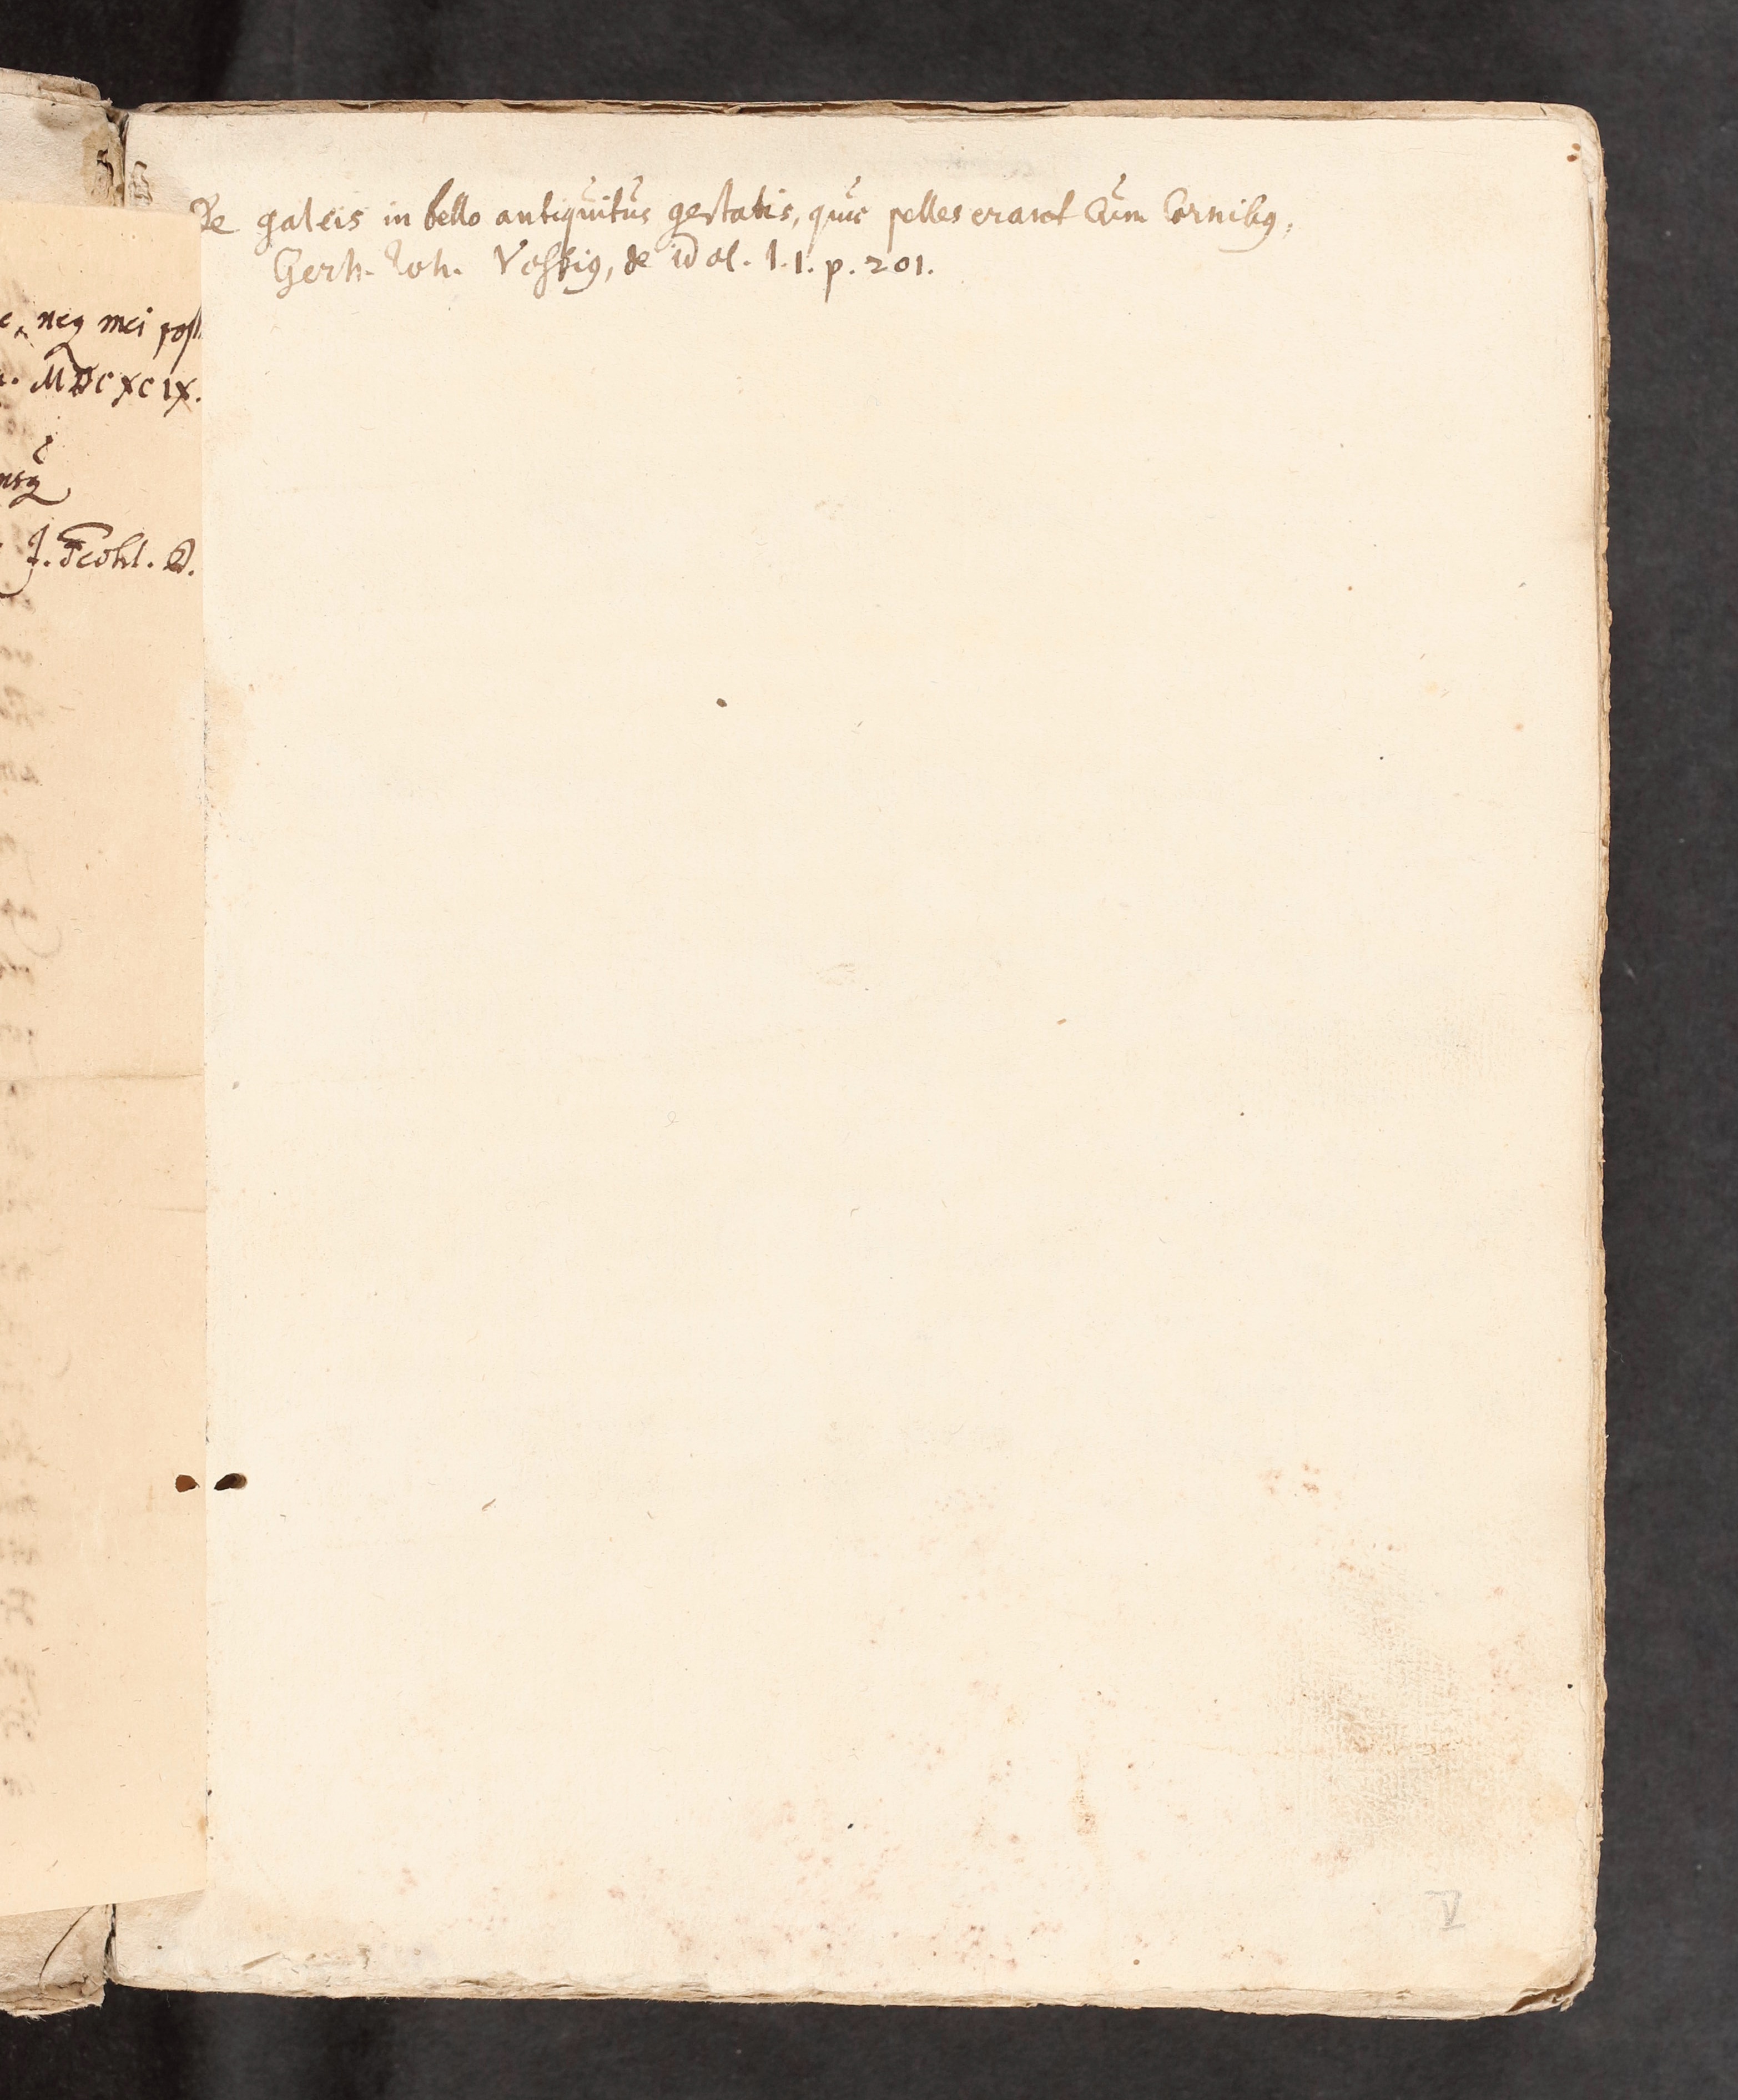 e, neq mei post
. MDCXCIX.
J. Fecht. D.
De galeis in bello antiquitus gestatis, quae pelles erant cum cornibus,
Gerh. Joh. Vossius, de idol. l. 1. p. 201.
V